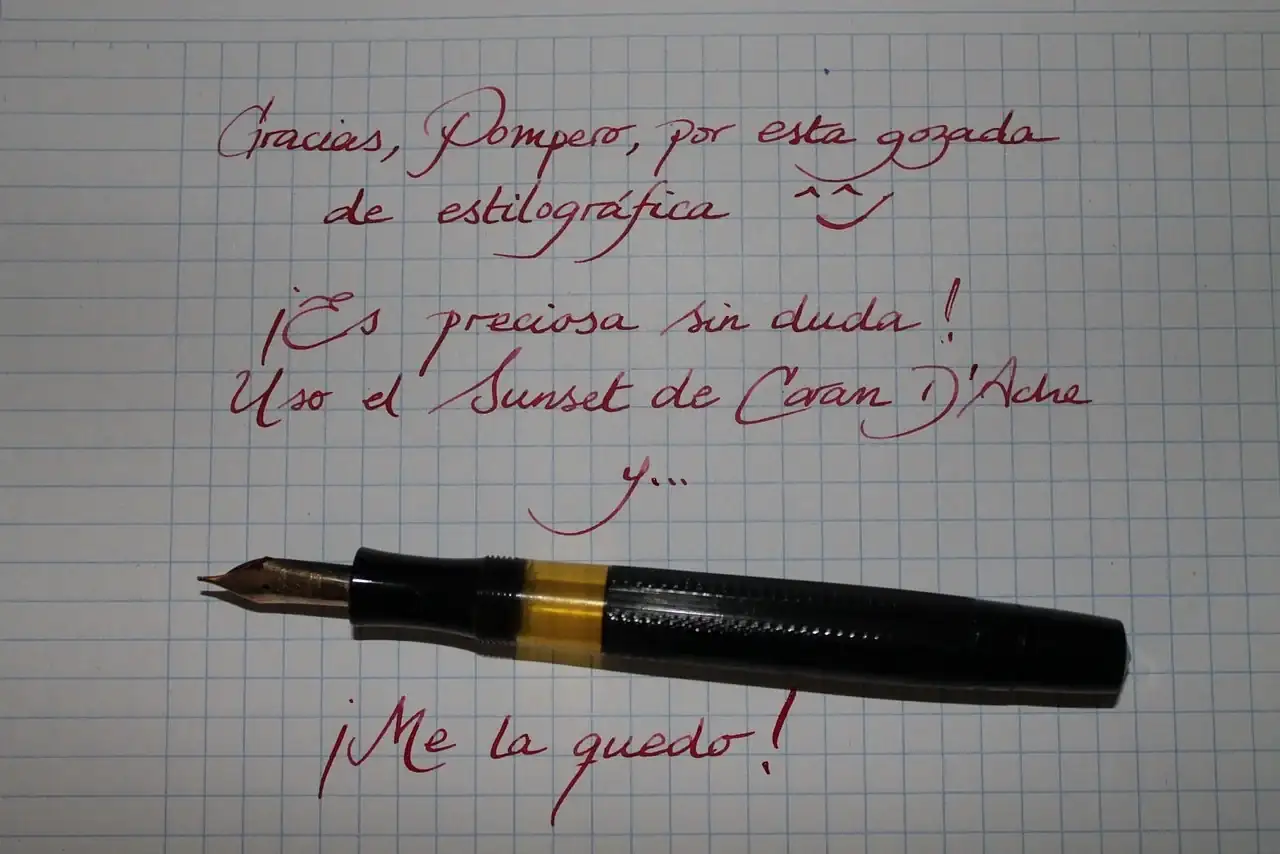 Gracias, Pompero, por esta gozada
de estilográfica ^^
¡Es preciosa sin duda!
Uso el Sunset de Caran D'Ache
y...
¡Me la quedo!